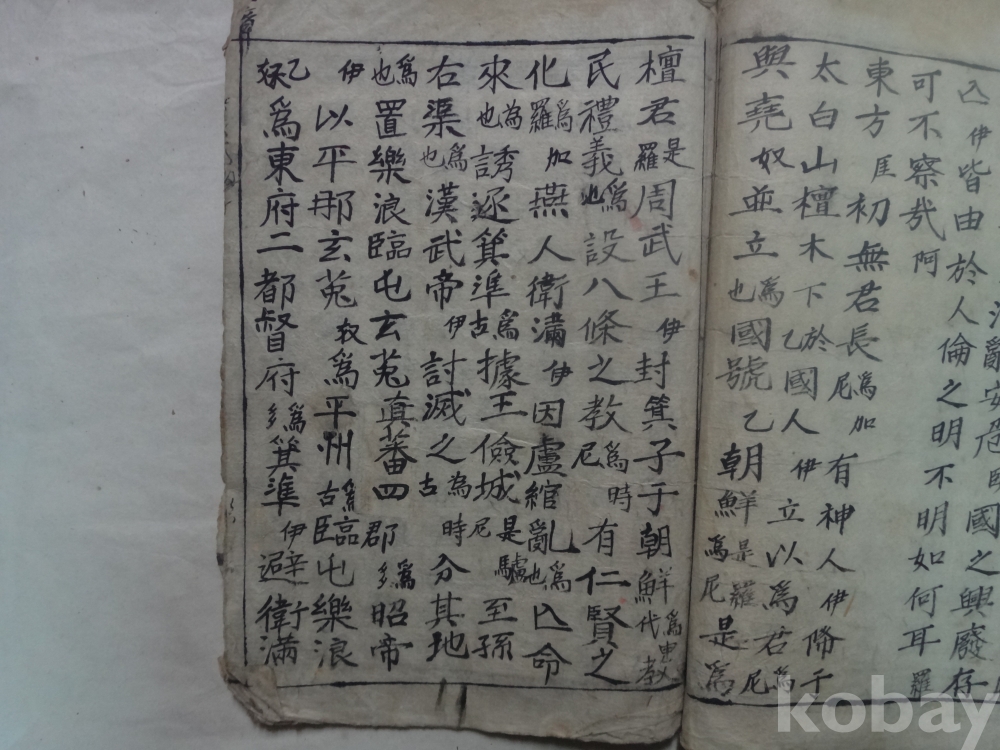 亡伊皆由於人倫之明不明如何耳羅
可不察哉阿
東方匡初無君長爲加尼有神人伊降于
太白山檀木下於乙國人伊立以爲君爲尼
與堯奴並立爲也國號乙朝鮮是羅爲尼是爲
檀君是羅周武王伊封箕子于朝鮮爲代教
民禮義爲也設八條之教爲時尼有仁賢之
化爲羅加燕人衛滿伊因盧綰亂爲也亡命
來爲也誘逐箕準爲古據王儉城是驢尼至孫
右渠爲也漢武帝伊討滅之爲時古分其地
爲也置樂浪臨屯玄菟眞蕃四郡爲多昭帝
伊以平那玄菟奴爲平州爲古臨屯樂浪
乙爲東府二都督府爲多箕準伊避衛滿
kobay